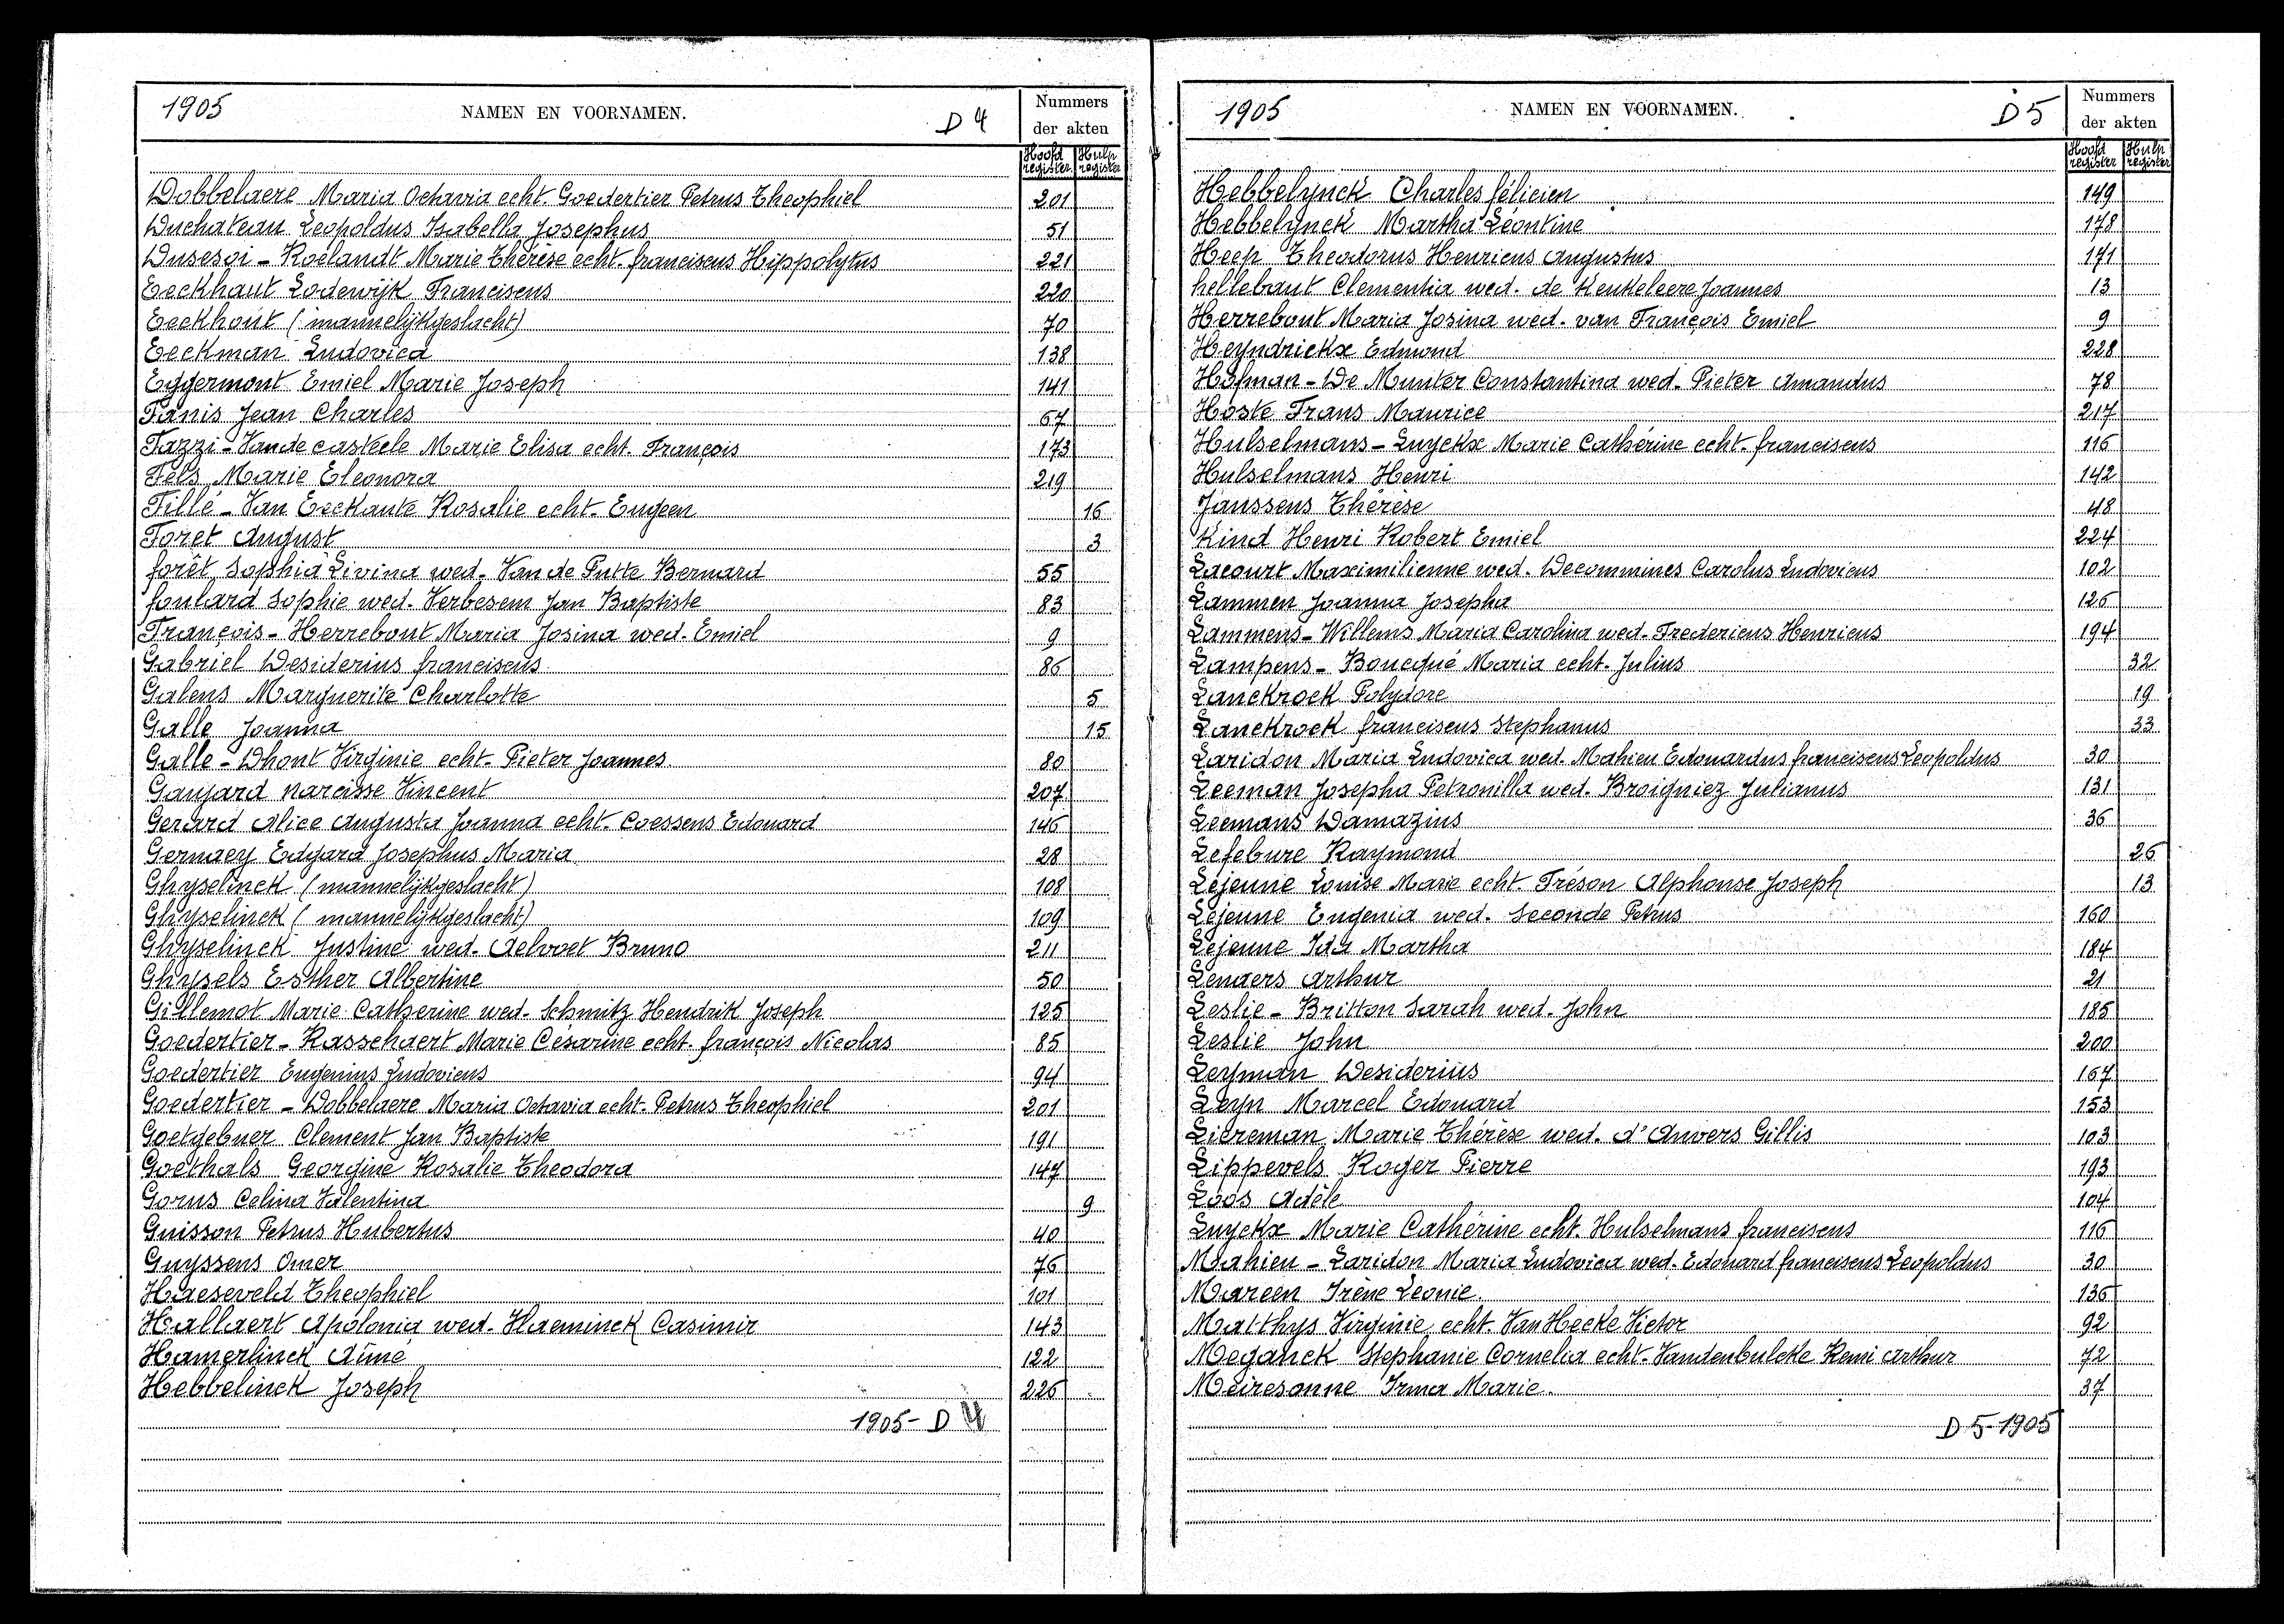 1905 NAMEN EN VOORNAMEN. D 4 Nummers der akten
Hoofd register Hulp register
Dobbelaere Maria Octavia echt. Goedertier Petrus Theophiel 201
Duchateau Leopoldus Isabella Josephus 51
Dusesoi - Roelandt Marie Thérèse echt. franciscus Hippolytus 221
Eeckhaut Lodewijk Franciscus 220
Eeckhout (mannelijkgeslacht) 70
Eeckman Ludovica 138
Eggermont Emiel Marie Joseph 141
Fanis Jean Charles 67
Fazzi - Vande casteele Marie Elisa echt. François 173
Fels Marie Eleonora 219
Fillé - Van Eeckaute Rosalie echt. Eugeen 16
Foret August 3
forêt Sophia Livina wed. Van de Putte Bernard 55
foulard Sophie wed. Verbesem Jan Baptiste 83
François - Herrebout Maria Josina wed. Emiel 9
Gabriel Desiderius franciscus 86
Galens Marguerite Charlotte 5
Galle Joanna 15
Galle - Dhont Virginie echt. Pieter Joannes 80
Ganjard narcisse Vincent 207
Gerard Alice Augusta Joanna echt. Coessens Edouard 146
Gernaey Edgard Josephus Maria 28
Ghyselinck (mannelijkgeslacht) 108
Ghyselinck (mannelijkgeslacht) 109
Ghyselinck Justine wed. Aelvoet Bruno 211
Ghysels Esther Albertine 50
Gillemot Marie Catherine wed. Schmitz Hendrik Joseph 125
Goedertier - Rasschaert Marie Césarine echt. françois Nicolas 85
Goedertier Eugenius Ludovicus 94
Goedertier - Dobbelaere Maria Octavia echt. Petrus Theophiel 201
Goetgebuer Clement Jan Baptiste 191
Goethals Georgine Rosalie Theodora 147
Gorus Celina Valentina 9
Guisson Petrus Hubertus 40
Guyssens Omer 76
Haeseveld Theophiel 101
Hallaert Apolonia wed. Haeminck Casimir 143
Hamerlinck Aimé 122
Hebbelinck Joseph 226
1905 - D 4
1905 NAMEN EN VOORNAMEN. D 5 Nummers der akten
Hoofd register Hulp register
Hebbelynck Charles félicien 149
Hebbelynck Martha Léontine 178
Heep Theodorus Henricus Augustus 171
hellebaut Clementia wed. de Keukeleere Joannes 13
Herrebout Maria Josina wed. van François Emiel 9
Heyndrickx Edmond 228
Hofman - De Munter Constantina wed. Pieter Amandus 78
Hoste Frans Maurice 217
Hulselmans - Luyckx Marie Cathérine echt. franciscus 116
Hulselmans Henri 142
Janssens Thérèse 48
Kind Henri Robert Emiel 224
Lacourt Maximilienne wed. Decommines Carolus Ludovicus 102
Lammen Joanna Josepha 126
Lammens - Willems Maria Carolina wed. Fredericus Henricus 194
Lampens - Boucqué Maria echt. Julius 32
Lanckrock Polydore 19
Lanckrock franciscus Stephanus 33
Laridon Maria Ludovica wed. Mahieu Edouardus franciscus Leopoldus 30
Leeman Josepha Petronilla wed. Broigniez Julianus 131
Leemans Damazius 36
Lefebure Raymond 26
Lejeune Louise Marie echt. Fréson Alphonse Joseph 13
Lejeune Eugenia wed. Seconde Petrus 160
Lejeune Ida Martha 184
Lenaers Arthur 21
Leslie - Britton Sarah wed. John 185
Leslie John 200
Leyman Desiderius 167
Leyn Marcel Edouard 153
Liereman Marie Thérèse wed. d'Anvers Gillis 103
Lippevels Roger Pierre 193
Loos Adèle 104
Luyckx Marie Cathérine echt. Hulselmans franciscus 116
Mahieu - Laridon Maria Ludovica wed. Edouard franciscus Leopoldus 30
Mareen Irène Leonie. 136
Matthys Virginie echt. Van Hecke Victor 92
Meganck Stephanie Cornelia echt. Vandenbulcke Remi Arthur 72
Meiresonne Irma Marie. 37
D 5 - 1905